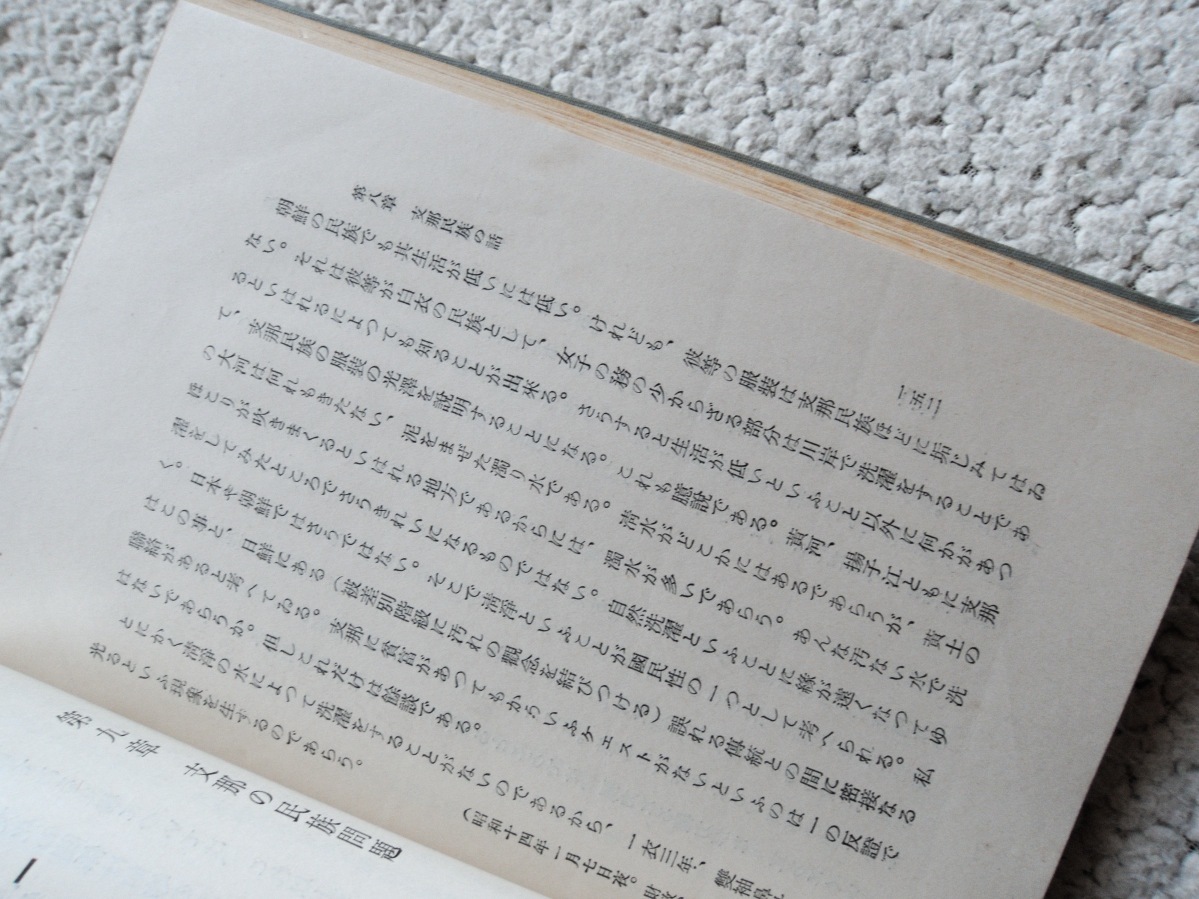 第八章　支那民族の話
一五二
朝鮮の民族でも共生活が低いには低い。けれども、彼等の服裝は支那民族ほどに垢じみてはゐ
ない。それは彼等が白衣の民族として、女子の務の少からざる部分は川岸で洗濯をすることであ
るといはれるによつても知ることが出來る。さうすると生活が低いといふこと以外に何かがあつ
て、支那民族の服裝の光澤を說明することになる。これも臆說である。黃河、揚子江ともに支那
の大河は何れもきたない、泥をまぜた濁り水である。淸水がどこかにはあるであらうが、黃土の
ほとりが吹きまくるといはれる地方であるからには、濁水が多いであらう。あんな汚ない水で洗
濯をしてみたところでさうきれいになるものではない。自然洗濯といふことに緣が遠くなつてゆ
く。日本や朝鮮ではさうではない。そこで淸淨といふことが國民性の一つとして考へられる。私
はこの事と、日鮮にある（被差別階級に汚れの觀念を結びつける）誤れる傳統との間に密接なる
聯絡があると考へてゐる。支那に貧富があつてもかういふケエストがないといふのは一の反證で
はないであらうか。但しこれだけは餘談である。
とにかく淸淨の水によつて洗濯をすることがないのであるから、一衣三年、雙袖
光るといふ現象を生ずるのであらう。
（昭和十四年一月七日夜。
第九章　支那の民族問題
一